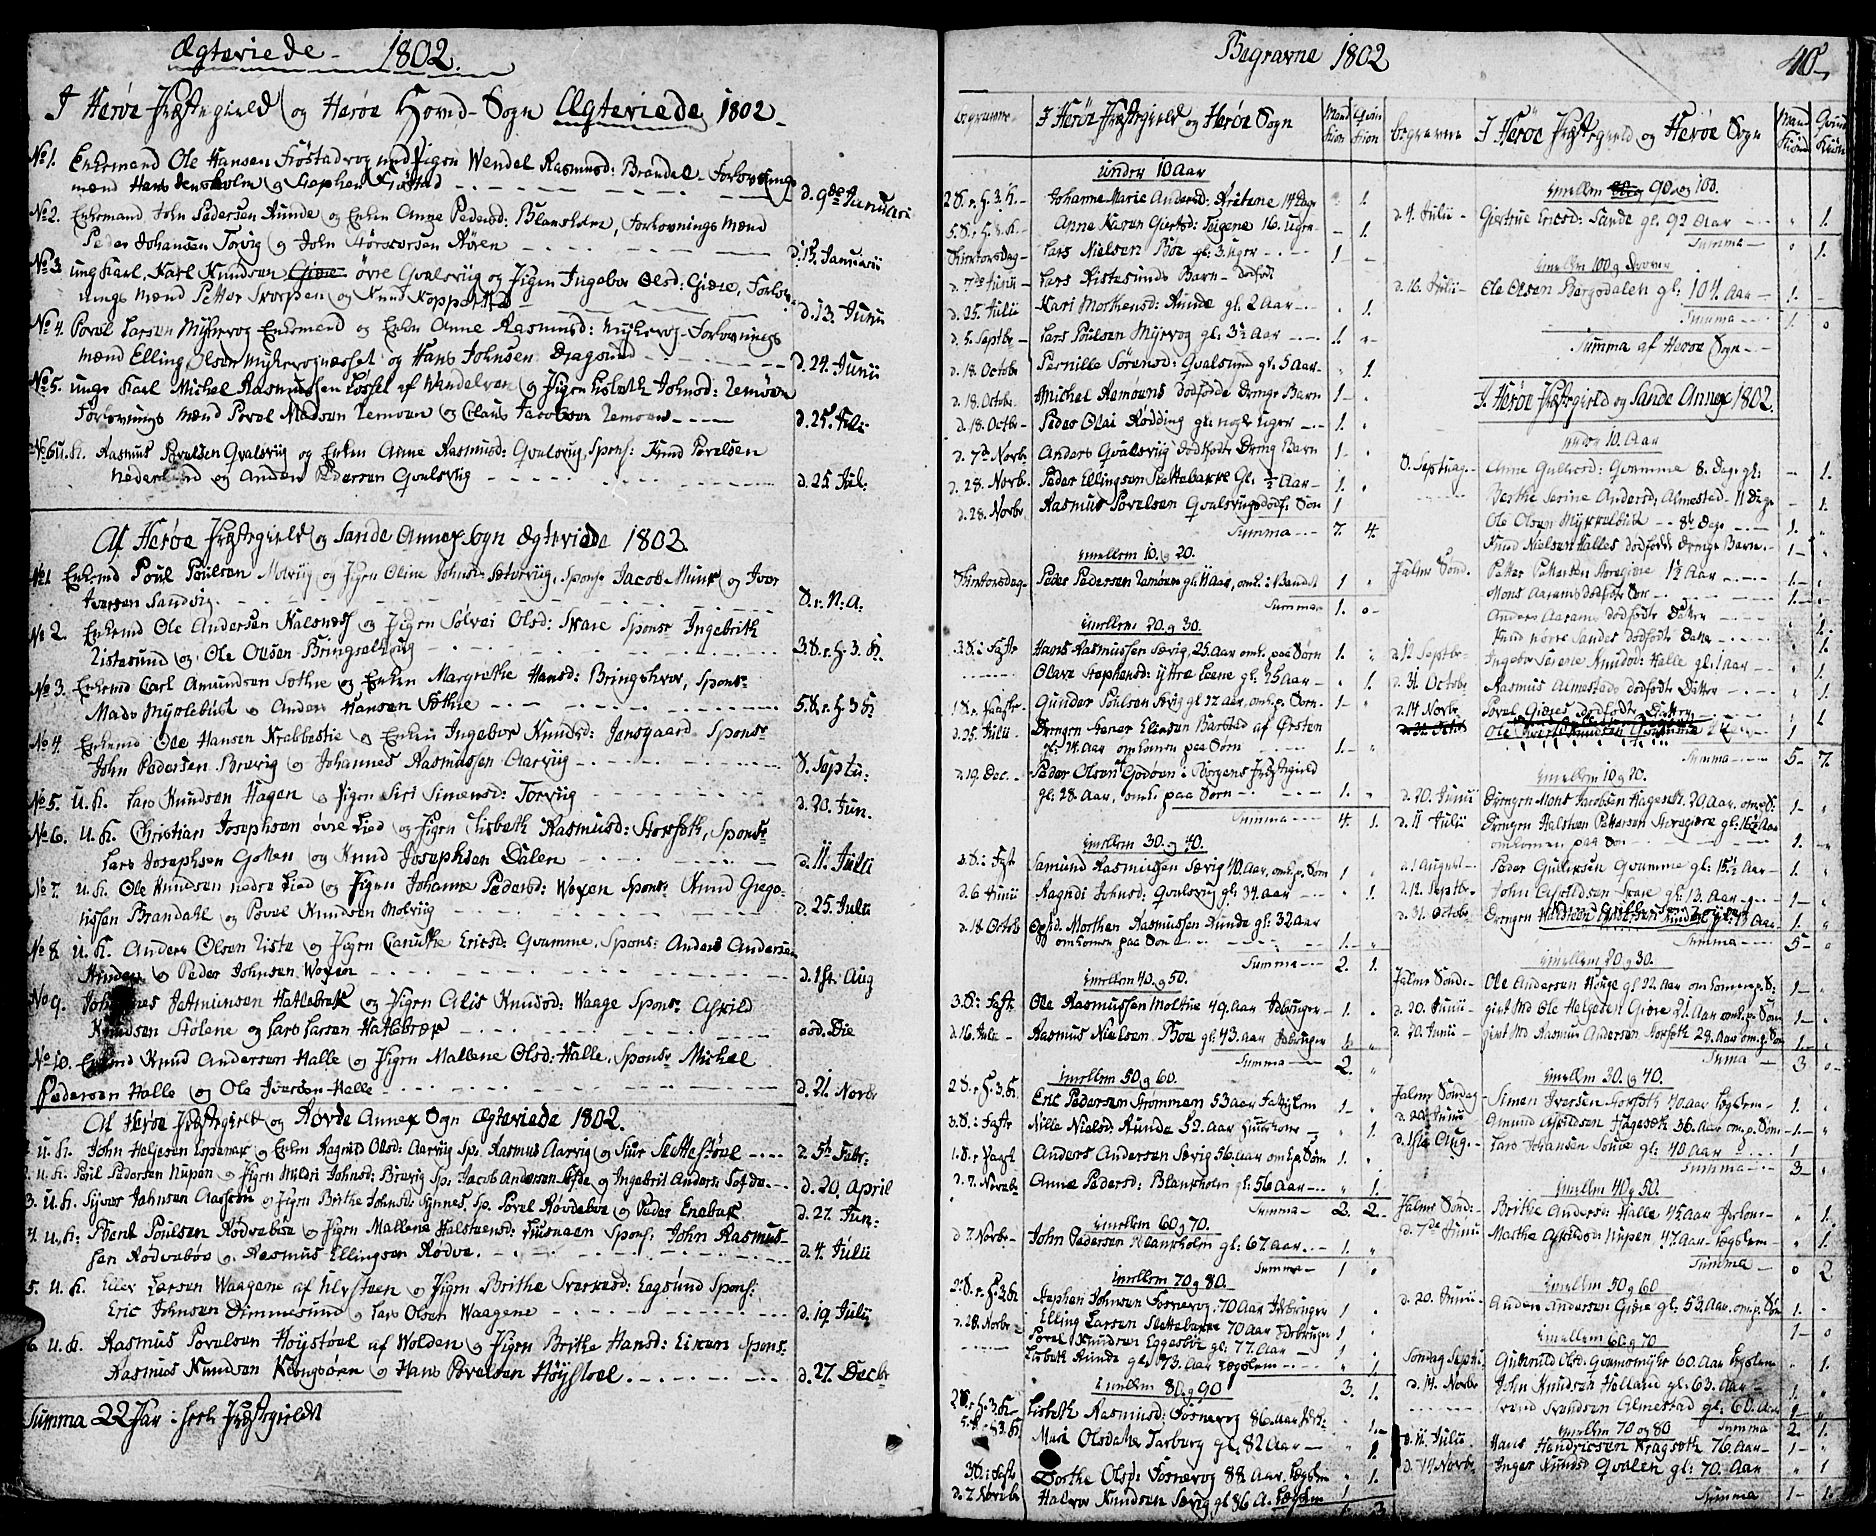 Ægteviede - 1802.
I Herøe Præstegield og Herøe Hoved-Sogn Ægteviede 1802
No 1. Enkemand Ole Hansen Frøstad og Pigen Wendel Rasmusd: Brandal - Forlovnings
mænd Hans Jensholm og Stephen Frøstad d. 9de Januari
No 2. Enkemand John Pedersen Runde og Enken Anne Pedersd: Blansholm, Forlovnings Mænd
Peder Johansen Torvig og John d. 13 Januarii
No 3 ung Karl, Karl Knudsen øvre Qvalsviig og Pigen Ingebor Olsd: Giøre, Forlov-
nings Mænd Petter Skorpen og Knud Koppen d. 13. Junii
No 4. Povel Larsen Myklevog Enkemand og Enken Anne Rasmusd: Myklevog - Forlovnings
mænd Elling Olsen Myklevognesset og Hans Johnsen Dragsund d. 24. Junii
No 5. unge Karl Michel Rasmussen Løsset af Wandelven og Pigen Lisbeth Johnsd: Lemøen
Forlovnings Mænd Povel Madsen Lemoen og Claus Jacobsen Lemoen d. 25. Juli
No 6 U. K. Rasmus Povelsen Qvalsviig og Enken Anne Rasmusd: Qvalsvig, Spons: Knud Povelsen
Nederlund og Anders Pedersen Qvalsviig d. 25 Jul:
Af Herøe Præstegield og Sande Annex Sogn Ægteviede 1802.
No 1. Enkemd Poul Poulsen Molviig og Pigen Oline Johnsd: Sætervig, Spons: Jacob Munk og Iver
Iversen Sandvig D. n. N. A:
No 2. Enkemd Ole Andersen Kalsnes og Pigen Sølvei Olsd: Skare Spons: Ingebrith
Ristesund og Ole Olsen Bringsethoug 3 S. e. H. 3. K.
No 3. Enkemd Carl Amundsen Sæthre og Enken Margrethe Hansd: Bringshvor, Spons:
Mads Myklebust og Anders Hansen Sæthre 5 S. e. H. 3 K
No 4. Enkemd Ole Hansen Krabbestie og Enken Ingebor Knudsd: Jensgaard Spons:
John Pedersen Brevig og Johannes Rasmussen Aarviig S. Septu:
No 5. U. K. Lars Knudsen Hagen og Pigen Siri Simensd: Torviig d. 20. Jun.
No 6. U. K. Christian Josephsen øvre Lied og Pigen Lisbeth Rasmusd: Storseth, Spons:
Lars Josephsen Gotten og Knud Josephsen Dalen d. 11. Julii
No 7. U. K. Ole Knudsen nedre Lied og Pigen Johanne Pedersd: Woxen Spons: Knud Grego-
rissen Brandahl og Povel Knudsen Molviig d. 25. Julii
No 8. U. K. Anders Olsen Riste og Pigen Caruthe Ericsd: Qvamme, Spons: Anders Andersen
og Peder Johnsen Woxen d. 1ste Aug
No 9. Johannes Jetmunsen Hatlebrek og Pigen Alis Knudsd: Waage Spons: Askild
Knudsen Stølene og Lars Larsen Hatlebræk eod. Die
No 10. Enkemd Knud Andersen Halle og Pigen Mallene Olsd: Halle, Spons: Michel
Pedersen Halle og Ole Iversen Halle d. 21. Novbr
Af Herøe Præstegield og Rovde Annex Sogn Ægteviede 1802.
U. K. John Helgesen Espenæs og Enken Ragnild Olsd: Aarviig Sp: Rasmus Aarvig og Siur Settestøel d. 5te Febr:
2. U. K. Poul Pedersen Nupen og Pigen Mildri Johnsd: Brevig Sp: Jacob Andersen og Ingebrit Anders: Sefde d. 20. April
3. U. K. Syver Johnsen Aasseen og Pigen Brithe Johnsd: Synnes, Sp: Povel Rovdebøe og Peder Enebak d. 27. Jun:
4. U. K: Bent Poulsen Rødvebøe og Pigen Mallene Halstensd: Tusnæen Spons: John Rasmus-
sen Rødvebøe og Rasmus Ellingsen Rødve. d. 4. Julii
5. U. K. Eller Larsen Waagene af Ulvsteen og Pigen Brithe Sverresd: Eegsund Spons:
Eric Johnsen Dimmesund og Lars Olsen Waagene d. 19. Julii
6. U. K. Rasmus Povelsen Høystøel af Wolden og Pigen Brithe Hansd: Eikrem Spons:
Rasmus Knudsen Kongsvren og Hans Povelsen Høystoel d. 27. Decbr
Summa 22 Par i heele Præstegieldet
Begravne 1802
40
begravne I Herøe Præstegield og Herøe Sogn Mand Kiøn Qvin Kiøn
under 10 Aar
2 S. e. H. 3. K. Johanne Marie Andersd: 14 Dage 1.
5 S. e. H. 3. K. Anne Karen Giertsd: Teigene 16. Ugr 1.
Skiertorsdag Lars Nielsen Bøe gl. 3. uger 1
7de Junii Lars Ristesunds Barn dødfødt
d. 25. Julii Kari Morthensd: Runde gl. 2 Aar 1.
d. 5. Septbr Lars Poulsen Myrvog gl. 3½ Aar 1.
d. 18. Octobr Pernille Sørensd: Qvalsund gl. 5 Aar 1.
d. 18. Octobr Michel Remøens dødfødde Drenge Barn 1
d. 18. Octbr Peder Olai Rødding gl. nogle Uger 1.
d. 7de Novbr Anders Qvalsviig dødfødt Dreng Barn 1
d. 28. Novbr Peder Ellingsen Slettebakke Gl. ½ Aar 1.
d. 28. Novbr Rasmus Povelsen Qvalsvigs dødf. Søn 1
Summa 7. 4.
imellem 10. og 20.
Skiertorsdag Peder Pedersen Remøen gl. 11 Aar, omk: 1
Summa 1. 0
imellem 20 og 30.
3 S. i Faste Hans Rasmussen Sævig 25 Aar omk. paa Søen 1.
Olave Stephensd: Yttre Leene gl. 25 Aar 1.
1 S. e. Paaske Gunder Poulsen Sævig gl 22 Aar, omk. p. Søen 1
d. 25. Julii Drengen Elensen Barstad af Ørsten
gl. 24. Aar omkomen paa Søen 1
d. 19. Dec. Peder Olsen Godøen i Borgens Præstegield
gl: 28. Aar, omk. paa Søen 1.
Summa 4. 1.
imellem 30. og 40.
3 S: i Fast Samund Rasmussen Sævig 40 Aar, omk. p. Søen 1
d. 6 Junii Ragndi Johnsd: Qvalsvig gl: 34. Aar 1.
d. 18 Octob Morthen Rasmussen Runde gl: 32 Aar
omkomen paa Søen 1.
Summa 2. 1.
imellem 40. og 50.
3 S: i Faste Ole Rasmussen Moltue 49. Aar Jdbruger 1.
d. 16. Julii Rasmus Nielsen Boe gl: 43. Aar Jdbruger 1.
Summa 2.
imellem 50 og 60.
2 S. e. H. 3. K. Eric Pedersen Strømmen 53 Aar Fattiglem 1
3. S: i Faste Nille Nielsd: Runde 52. Aar Huuskone 1.
1. S. e Paask Anders Andersen Sævig 56. Aar omk. p. Søen 1.
d. 7. Novebr Anne Pedersd: Blankholm gl: 56 Aar 1.
Summa 2. 2.
imellem 60 og 70.
d. 7. Novbr John Pedersen Blankholm gl: 67. Aar 1.
Summa 1 0
imellem 70 og 80
2 S. e. H. 3 K Stephen Johnsen Fosnevog 70 Aar Jdbruger 1
d. 28. Novbr Elling Larsen Slettebakke 70 Aar Jdbruger 1
Povel Knudsen Eggesbøe gl: 77. Aar 1
Lisbeth Runde gl. 73. Aar Lægslem 1
imellem 80 og 90 3. 1.
2 S. e. H. 3 K Lisbeth Rasmusd: Fosnevog 86 Aar 1.
5 S. e. H 3. K. Mari Olsdatter Tarberg gl. 82 Aar 1.
3 S: i Faste Dorthe Olsd: Fosnevog 82 Aar Lægslem 1.
d. 7. Novbr Halvor Knudsen Sævig gl 86 A. Lægslem 1
begravne I Herøe Præstegield og Herøe Sogn Mand Kiøn Qvind Kiøn
imellem 90 og 100.
d. 4. Julii Giertrue Ericsd: Sande gl. 92 Aar 1.
Summa 0 1.
imellem 100 og Doover
d. 16. Julii Ole Olsen Bergsdalen gl: 104. Aar 1.
Summa 1. 0
Summa af Herøe Sogn
I Herøe Præstegield og Sande Annex 1802.
under 10. Aar
D. Septuag Anne Gulkesd: Qvamme 8. Dage gl: 1.
Berthe Serine Andersd, Almestad 11 Dage 1.
Ole Olsen Myklebust 8½ Dage 1.
Knud Nielsen Halles dødfødt Drenge Barn 1
Palme Sønd. Petter Pettersen Storegiøre 1½ Aar 1.
Mons Aarams dødfødte Søn 1.
Anders Aarams dødfødte Datter 1.
Knud nørre Sandes dødfødt Datter 1.
d. 12. Septbr Ingebor Serene Knudsd: Halle gl: 1 Aar 1
d. 31 Octobr Rasmus Almestads dødfødt Datter 1
d. 14 Novbr Povel Giøres dødfødt Datter 1
Summa 5 7.
imellem 10 og 20.
d. 20. Junii Drengen Mons Jacobsen Hagenes. 20 Aar. om p S: 1
d. 11 Julii Drengen Halsteen Pettersen Storegiøre gl: 16½ Aar
omkomen paa Søen 1.
d. 1 August Peder Gulliksen Qvamme gl: 15½ Aar 1
d. 12. Septbr John Askildsen Skare gl: 13. Aar 1
d. 31. Octobr Drengen gl: 17 Aar 1.
Summa 5 0
imellem 20 og 30.
Palme Sønd: Ole Andersen Houge gl 22. Aar omkomen p. S: 1
d. 20. Junii givt Md Ole Helgesen Giøre 21. Aar omk. p. Søen 1
d. 20. Junii givt Md Rasmus Andersen Storseth 29. Aar om. p. Søen 1
Summa 3 0
imellem 30. og 40.
Palme Søndag Simen Iversen Storseth 40. Aar Lægslem 1.
d. 20 Junii Amund Askildsen Hageseth 36. Aar om. p. Søen 1
d. 1ste Aug. Lars Johansen gl: 40 Aar 1
Summa 3
imellem 40 og 50.
Palme Sønd: Brithe Andersd: Halle 42 Aar 1.
d. 7de Junii Marthe Askildsd: Nupen 47. Aar Lægslem 1.
Summa 0 2.
imellem 50 og 60
d. 20. Junii Anders Andersen Giøre gl: 53. Aar, om. p. Søen 1
1 0
imellem 60 og 70
Søndag Septu Gutrould Olsd: Qvamsmyhr 60. Aar Lægslem 1.
d. 14. Novbr John Knudsen Holland gl: 63. Aar 1.
Svend Svendsen Almestad gl: 60. Aar 1
imellem 70 og 80 Summa 2. 1.
d. 11. Julii Hans Hendricsen Kragseth 76. Aar 1
d. 14 Novbr Inger Knudsd Qvalen gl: 70. Aar 1
Summa 1 1.